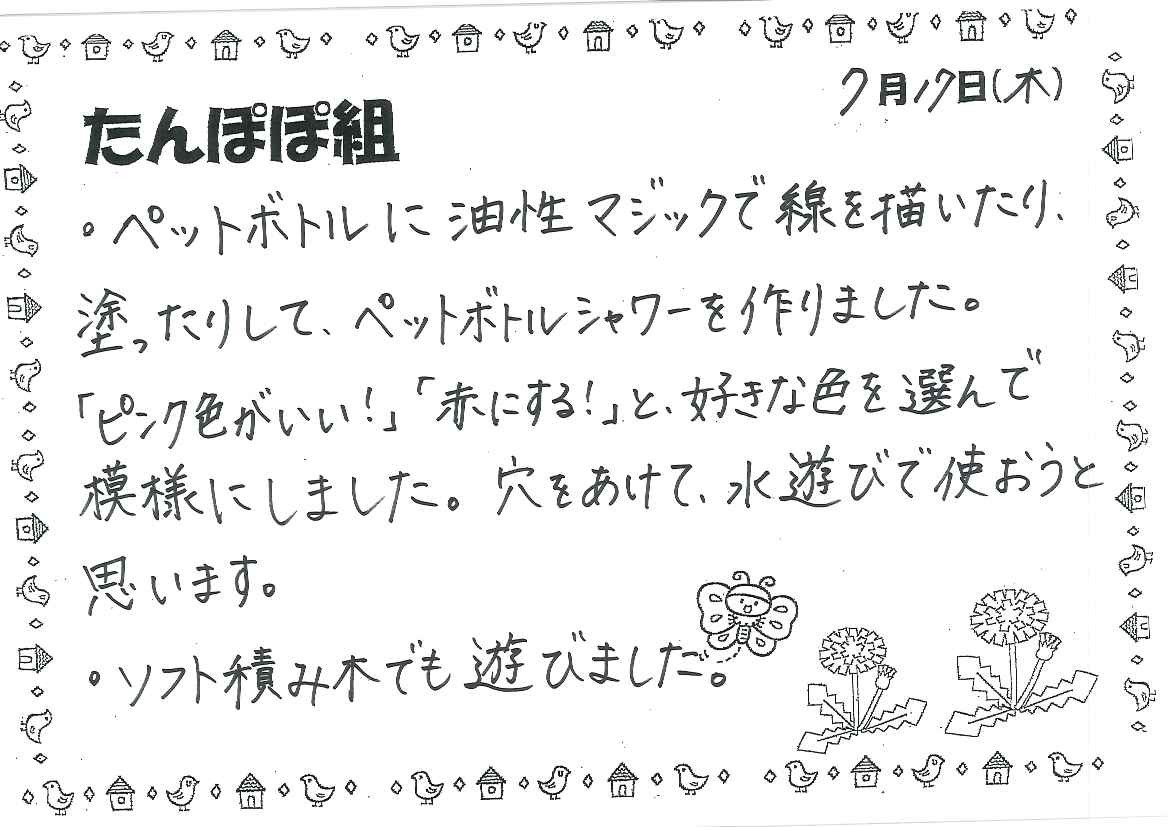 7月17日(木)
たんぽぽ組
・ペットボトルに油性マジックで線を描いたり、
塗ったりして、ペットボトルシャワーを作りました。
「ピンク色がいい!」「赤にする!」と、好きな色を選んで
模様にしました。穴をあけて、水遊びで使おうと
思います。
・ソフト積み木でも遊びました。